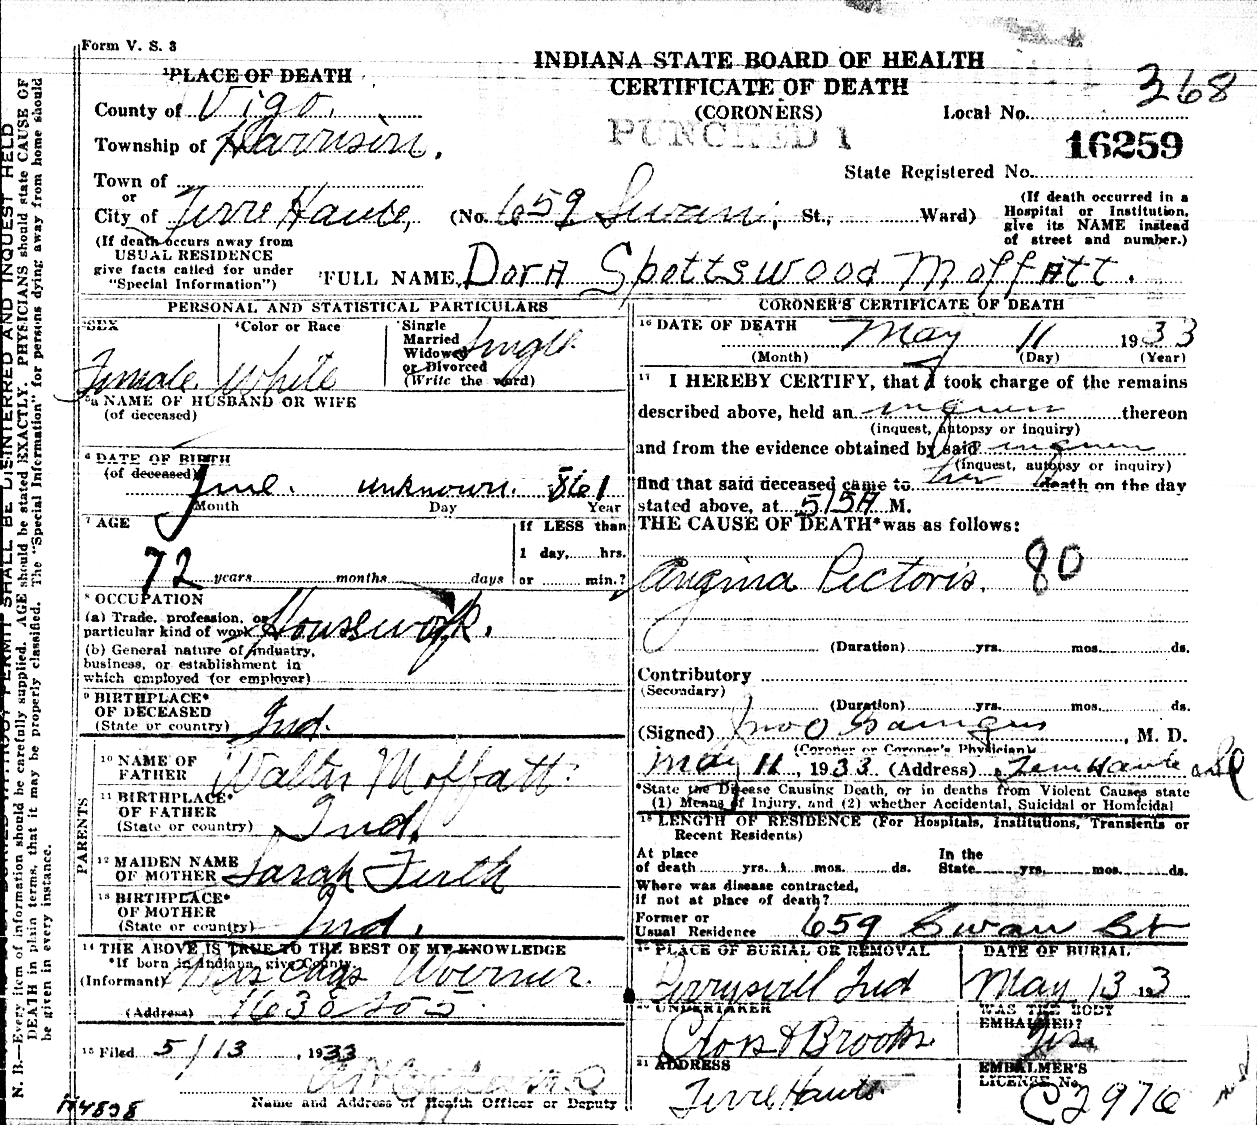 Form V. S. 3
INDIANA STATE BOARD OF HEALTH
CERTIFICATE OF DEATH
(CORONERS)
PUNCHED 1
Local No. 368
16259
State Registered No.
¹PLACE OF DEATH
County of Vigo.
Township of Harrison.
Town of
or
City of Terre Haute, (No. 659 Swan, St., Ward)
(If death occurs away from
USUAL RESIDENCE
give facts called for under
"Special Information")
(If death occurred in a
Hospital or Institution,
give its NAME instead
of street and number.)
²FULL NAME, Dora Spottswood Moffatt.
PERSONAL AND STATISTICAL PARTICULARS
³SEX
Female
⁴Color or Race
White
⁵Single
Married
Widowed
or Divorced
(Write the word)
Single
⁵a NAME OF HUSBAND OR WIFE
(of deceased)
⁶ DATE OF BIRTH
(of deceased)
June. unknown. 861
Month Day Year
⁷ AGE
72 years months days
If LESS than
1 day, hrs.
or min.?
⁸ OCCUPATION
(a) Trade, profession, or
particular kind of work Housework.
(b) General nature of industry,
business, or establishment in
which employed (or employer)
⁹ BIRTHPLACE*
OF DECEASED
(State or country) Ind.
PARENTS
¹⁰ NAME OF
FATHER Walter Moffatt
¹¹ BIRTHPLACE*
OF FATHER
(State or country) Ind.
¹² MAIDEN NAME
OF MOTHER Sarah Firth
¹³ BIRTHPLACE*
OF MOTHER
(State or country) Ind.
¹⁴ THE ABOVE IS TRUE TO THE BEST OF MY KNOWLEDGE
*If born in Indiana, give County.
(Informant) Mrs Chas Woerner.
(Address) 1630 So 5
¹⁵ Filed 5/13, 1933
Name and Address of Health Officer or Deputy
H4898
CORONER'S CERTIFICATE OF DEATH
¹⁶ DATE OF DEATH May 11 1933
(Month) (Day) (Year)
¹⁷ I HEREBY CERTIFY, that I took charge of the remains
described above, held an thereon
(inquest, autopsy or inquiry)
and from the evidence obtained by said
(inquest, autopsy or inquiry)
find that said deceased came to her death on the day
stated above, at 515A M.
THE CAUSE OF DEATH* was as follows:
Angina Pectoris. 80
(Duration) yrs. mos. ds.
Contributory
(Secondary)
(Duration) yrs. mos. ds.
(Signed) , M. D.
(Coroner or Coroner's Physician)
May 11, 1933 (Address) Terre Haute Ind
*State the Disease Causing Death, or in deaths from Violent Causes state
(1) Means of Injury, and (2) whether Accidental, Suicidal or Homicidal
¹⁸ LENGTH OF RESIDENCE (For Hospitals, Institutions, Transients or
Recent Residents)
At place
of death yrs. mos. ds.
In the
State yrs. mos. ds.
Where was disease contracted,
if not at place of death?
Former or
Usual Residence 659 Swan St
¹⁹ PLACE OF BURIAL OR REMOVAL
Perrysvill Ind
DATE OF BURIAL
May 13 193
²⁰ UNDERTAKER
Cross & Brooks
WAS THE BODY
EMBALMED?
Yes
²¹ ADDRESS
Terre Haute
EMBALMER'S
LICENSE No.
C2976
SHALL BE DISINTERRED AND INQUEST HELD
N. B.—Every item of information should be carefully supplied. AGE should be stated EXACTLY. PHYSICIANS should state CAUSE OF
DEATH in plain terms, that it may be properly classified. The "Special Information" for persons dying away from home should
be given in every instance.